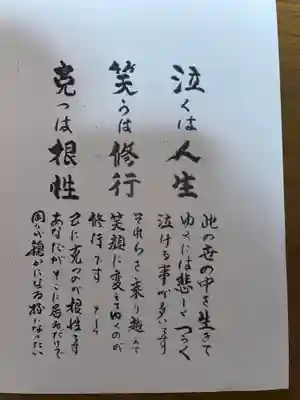 泣くは人生
笑うは修行
克つは根性
此の世の中を生きて
ゆくには悲しくつらく
泣ける事が多いです
それらを乗り越えて
笑顔に変えてゆくのが
修行です そして
己に克つのが根性です
あなたがそこに居るだけで
周りが穏やかになる様になりたい